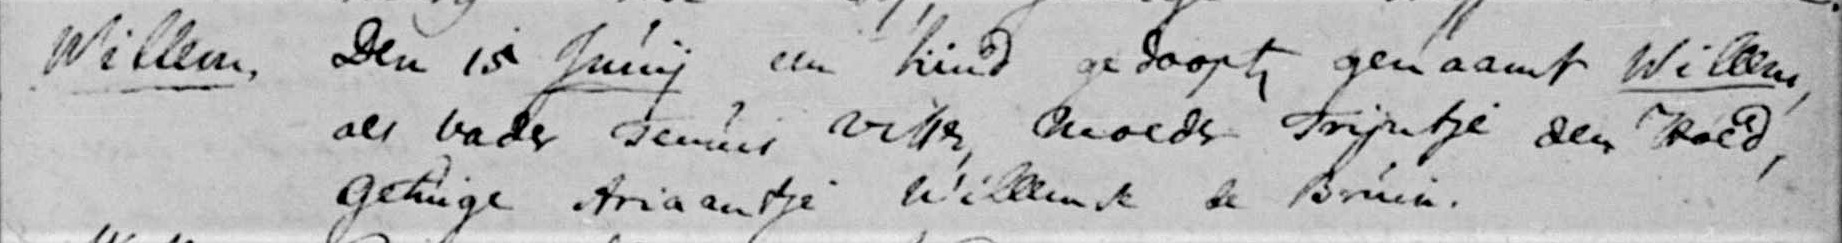 Willem. Den 15 Junij een kind gedoopt, genaamt Willem,
als vader Teunis Visser, Moeder Trijntje den Hoed,
getuige Ariaantje Willemse de Bruin.